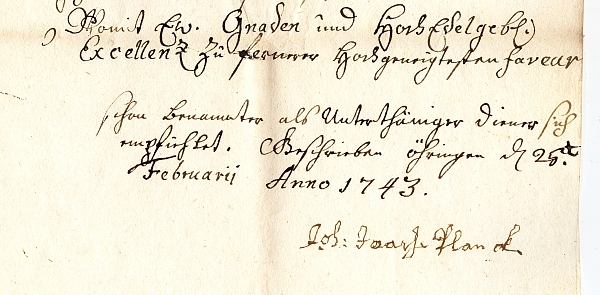 Womit Ew. Gnaden und HochEdelgeb:
Excellenz zu fernerer Hochgeneigtesten faveur
schon benannter als Unterthäniger diener sich
empfichlet. Geschrieben öhringen d 25.t
Februarii Anno 1743.
Joh: Planck